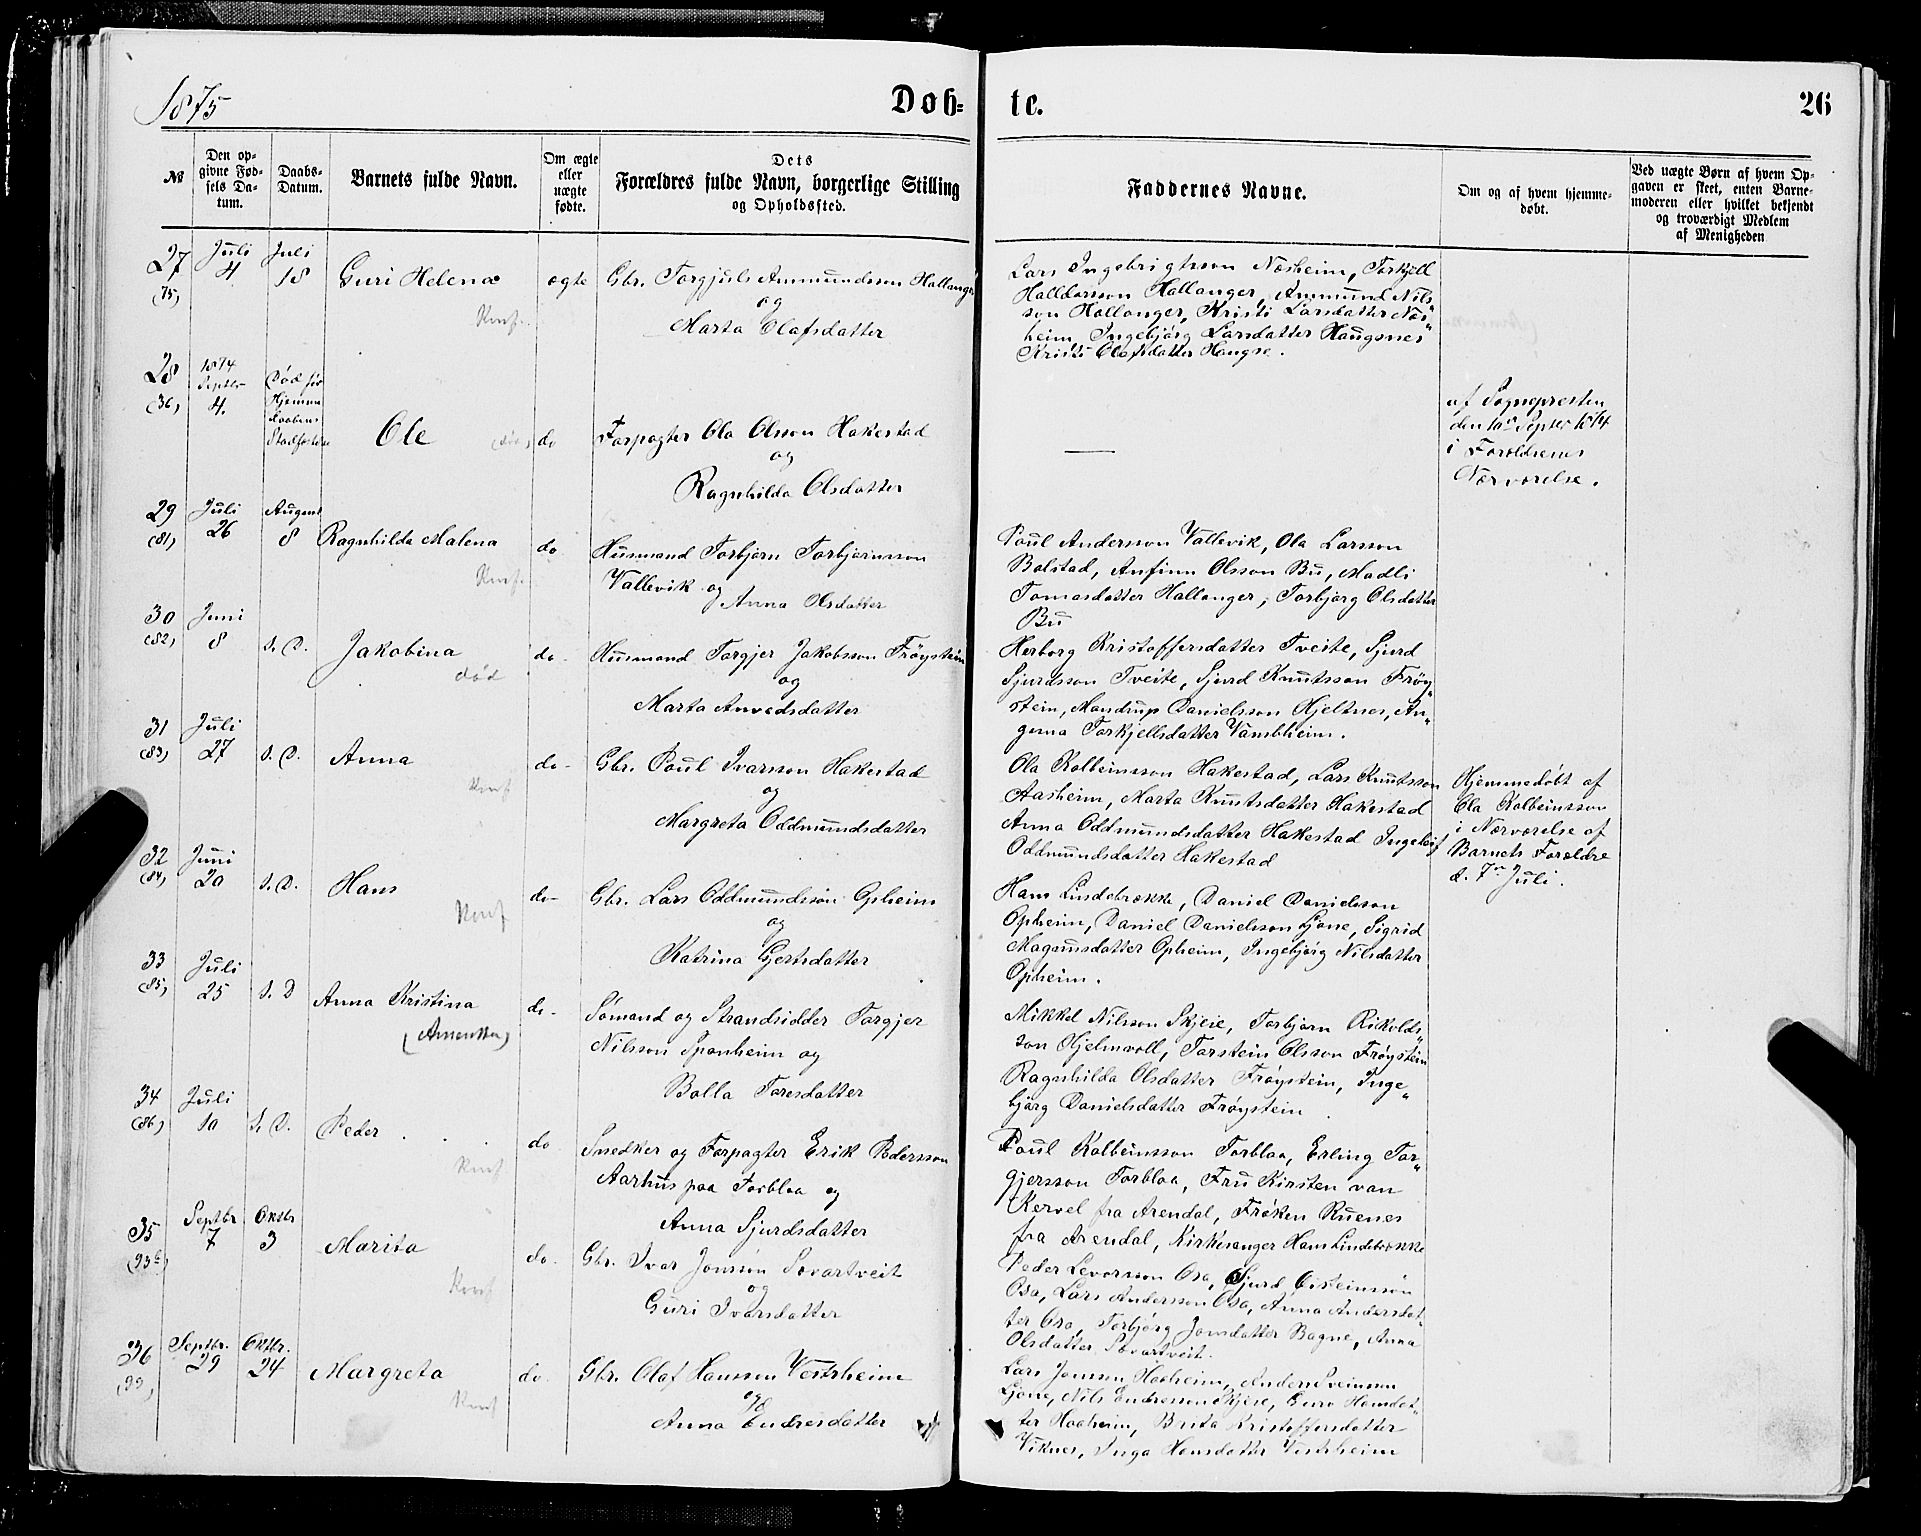 1875
Døb-
te.
26
№
Den op-
givne Fød-
sels Da-
tum.
Daabs-
Datum.
Barnets fulde Navn.
Om ægte
eller
uægte
fødte.
Dets
Forældres fulde Navn, borgerlige Stilling
og Opholdssted.
Faddernes Navne.
Om og af hvem hjemme-
døbt.
Ved uægte Børn af hvem Op-
gaven er skeet, enten Barne-
moderen eller hvilket bekjendt
og troværdigt Medlem
af Menigheden
27
(75)
Juli
4
Juli
18
Guri Helena
Konf.
ægte
Gbr. Torgjuls Ammundsson Hallanger
og
Marta Olafsdatter
Lars Ingebrigtsson Næsheim, Torkjell
Halldorsson Hallanger, Ammund Nils-
son Hallanger, Kristi Larsdatter Næs-
heim, Ingebjørg Larsdatter Haugsnes
Kristi Olafsdatter Haugse.
28
(36)
1874
Septbr
4.
Død før
Hjemme
daabens
Stadfæstelse
Ole
(død)
do
Forpagter Ola Olsson Hakestad
og
Ragnhilda Olsdatter
af Sognepresten
den 10de Septbr 1874
i Forældrenes
Nærværelse.
29
(81)
Juli
26
August
8
Ragnhilda Malena
Konf.
do
Husmand Torbjørn Torbjørnsson
Vallevik og
Anna Olsdatter
Poul Andersson Vallevik, Ola Larsson
Bolstad, Anfinn Olsson Bu, Madli
Tomasdatter Hallanger, Torbjørg Olsdatter
Bu
30
(82)
Juni
8
s. D.
Jakobina
død
do-
Husmand Torgjer Jakobsson Frøystein
og
Marta Anvedsdatter
Herborg Kristoffersdatter Tveite, Sjurd
Sjurdsson Tveite, Sjurd Knutsson Frøy-
stein, Mandrup Danielsson Hjeltnes, An-
gerna Torkjellsdatter Vambheim.
31
(83)
Juli
27
s. D.
Anna
Konf
do-
Gbr. Poul Ivarsson Hakestad
og
Margreta Oddmundsdatter
Ola Kolbeinsson Hakestad, Lars Knutsson
Aasheim, Marta Knutsdatter Hakestad
Anna Oddmundsdatter Hakestad Ingebjørg
Oddmundsdatter Hakestad
Hjemmedøbt af
Ola Kolbeinsson
i Nærværelse af
Barnets Forældre
d. 7de Juli.
32
(84)
Juni
20
s. D.
Hans
Konf
do-
Gbr. Lars Oddmundsson Opheim
og
Katrina Gjertsdatter
Hans Lindebrække, Daniel Danielsson
Opheim, Daniel Danielsson Gjone, Sigrid
Magnusdatter Opheim, Ingebjørg Nilsdatter
Opheim.
33
(85)
Juli
25
s. D
Anna Kristina
(Amerika)
do-
Sømand og Strandsidder Torgjer
Nilsson Sponheim og
Bolla Toresdatter
Mikkel Nilsson Skjeie, Torbjørn Rikolds-
son Hjelmvoll, Torstein Olsson Frøystein
Ragnhilda Olsdatter Frøystein, Inge-
bjørg Danielsdatter Frøystein
34
(86)
Juli
10
s. D.
Peder
Konf
do
Snedker og Forpagter Erik Pedersson
Aarhus paa Torbloa og
Anna Sjurdsdatter
Poul Kolbeinsson Torbloa, Erling Tor-
gjersson Torbloa, Fru Kirsten van
Kervel fra Arendal, Frøken Ruenes
fra Arendal, Kirkesanger Hans Lindebrække
35
(93b)
Septbr
7
Oktbr
3
Marita
Konf
do.
Gbr. Ivar Jonsson Sovartveit
og
Guri Ivarsdatter
Peder Levorsson Osa, Sjurd Eisteinsson
Osa, Lars Andersson Osa, Anna Andersdat-
ter Osa, Torbjørg Jonsdatter Bagne, Anna
Olsdatter Sovartveit.
36
(99)
Septbr.
29
Oktbr.
24
Margreta
Konf
do
Gbr. Olaf Hansson Vestrheim
og
Anna Endresdatter
Lars Jonsson Haaheim, Anders Sveinsson
Gjone, Nils Endresson Skjeie, Guro Hansdat-
ter Haaheim, Brita Kristoffersdatter
Viknes, Inga Hansdatter Vestrheim